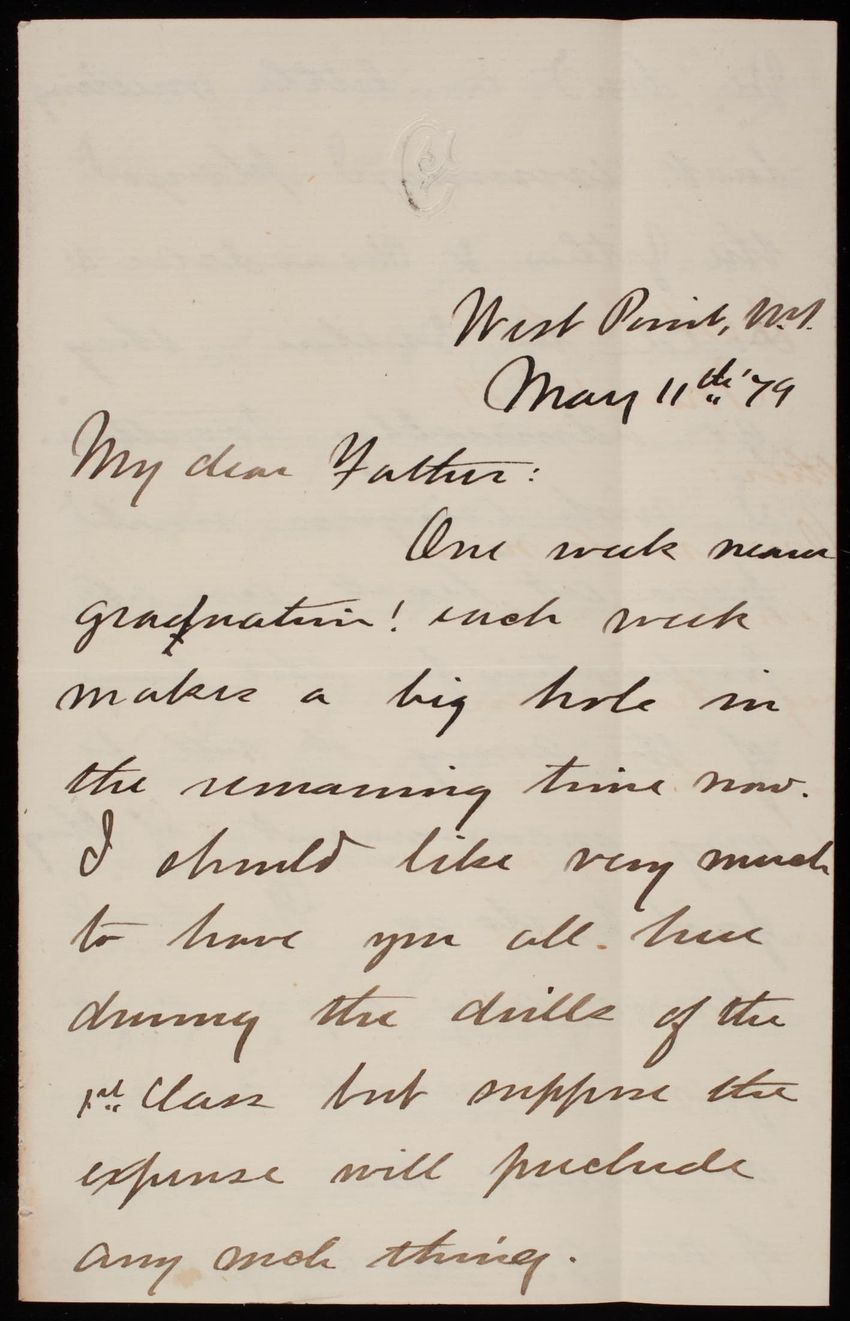 West Point, N.Y.
May 11th '79
My dear Father:
One week nearer
graduation! each week
makes a big hole in
the remaining time now.
I should like very much
to have you all here
during the drills of the
1st Class but suppose the
expense will preclude
any such thing.